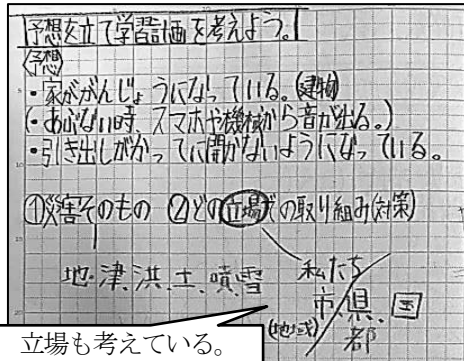 予想を立て学習計画を考えよう。
〈予想〉
・家ががんじょうになっている。(建物)
(・あぶない時、スマホや機械から音が出る。)
・引き出しがかってに開かないようになっている。
①災害そのもの ②どの立場での取り組み(対策)
地・津・洪・土・噴・雪
私たち
市、県、国
(地域)
都
立場も考えている。